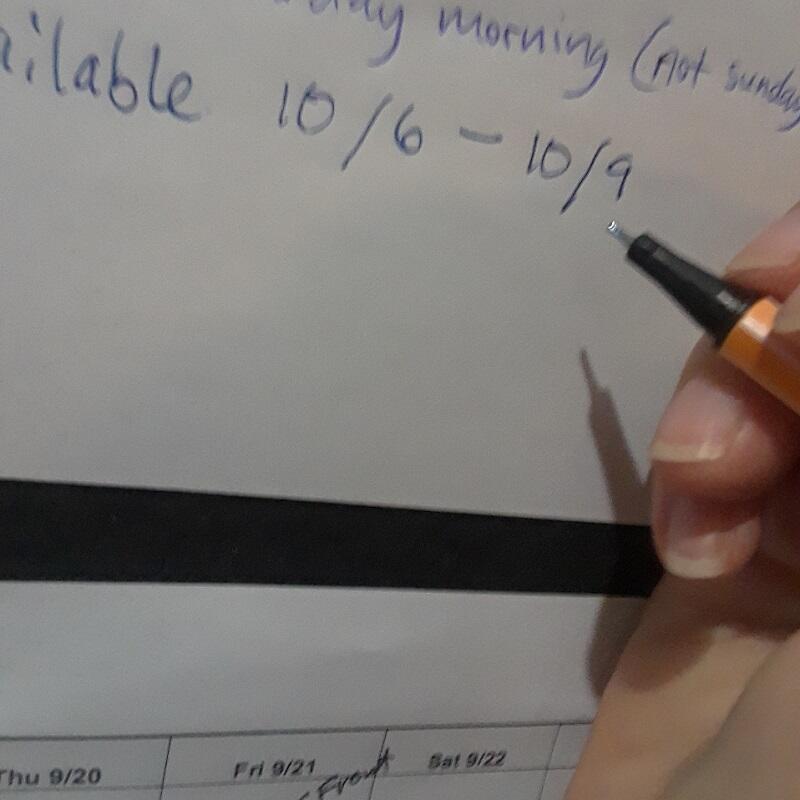 morning (not sunday
10/6 - 10/9
Thu 9/20 Fri 9/21 Sat 9/22
Front